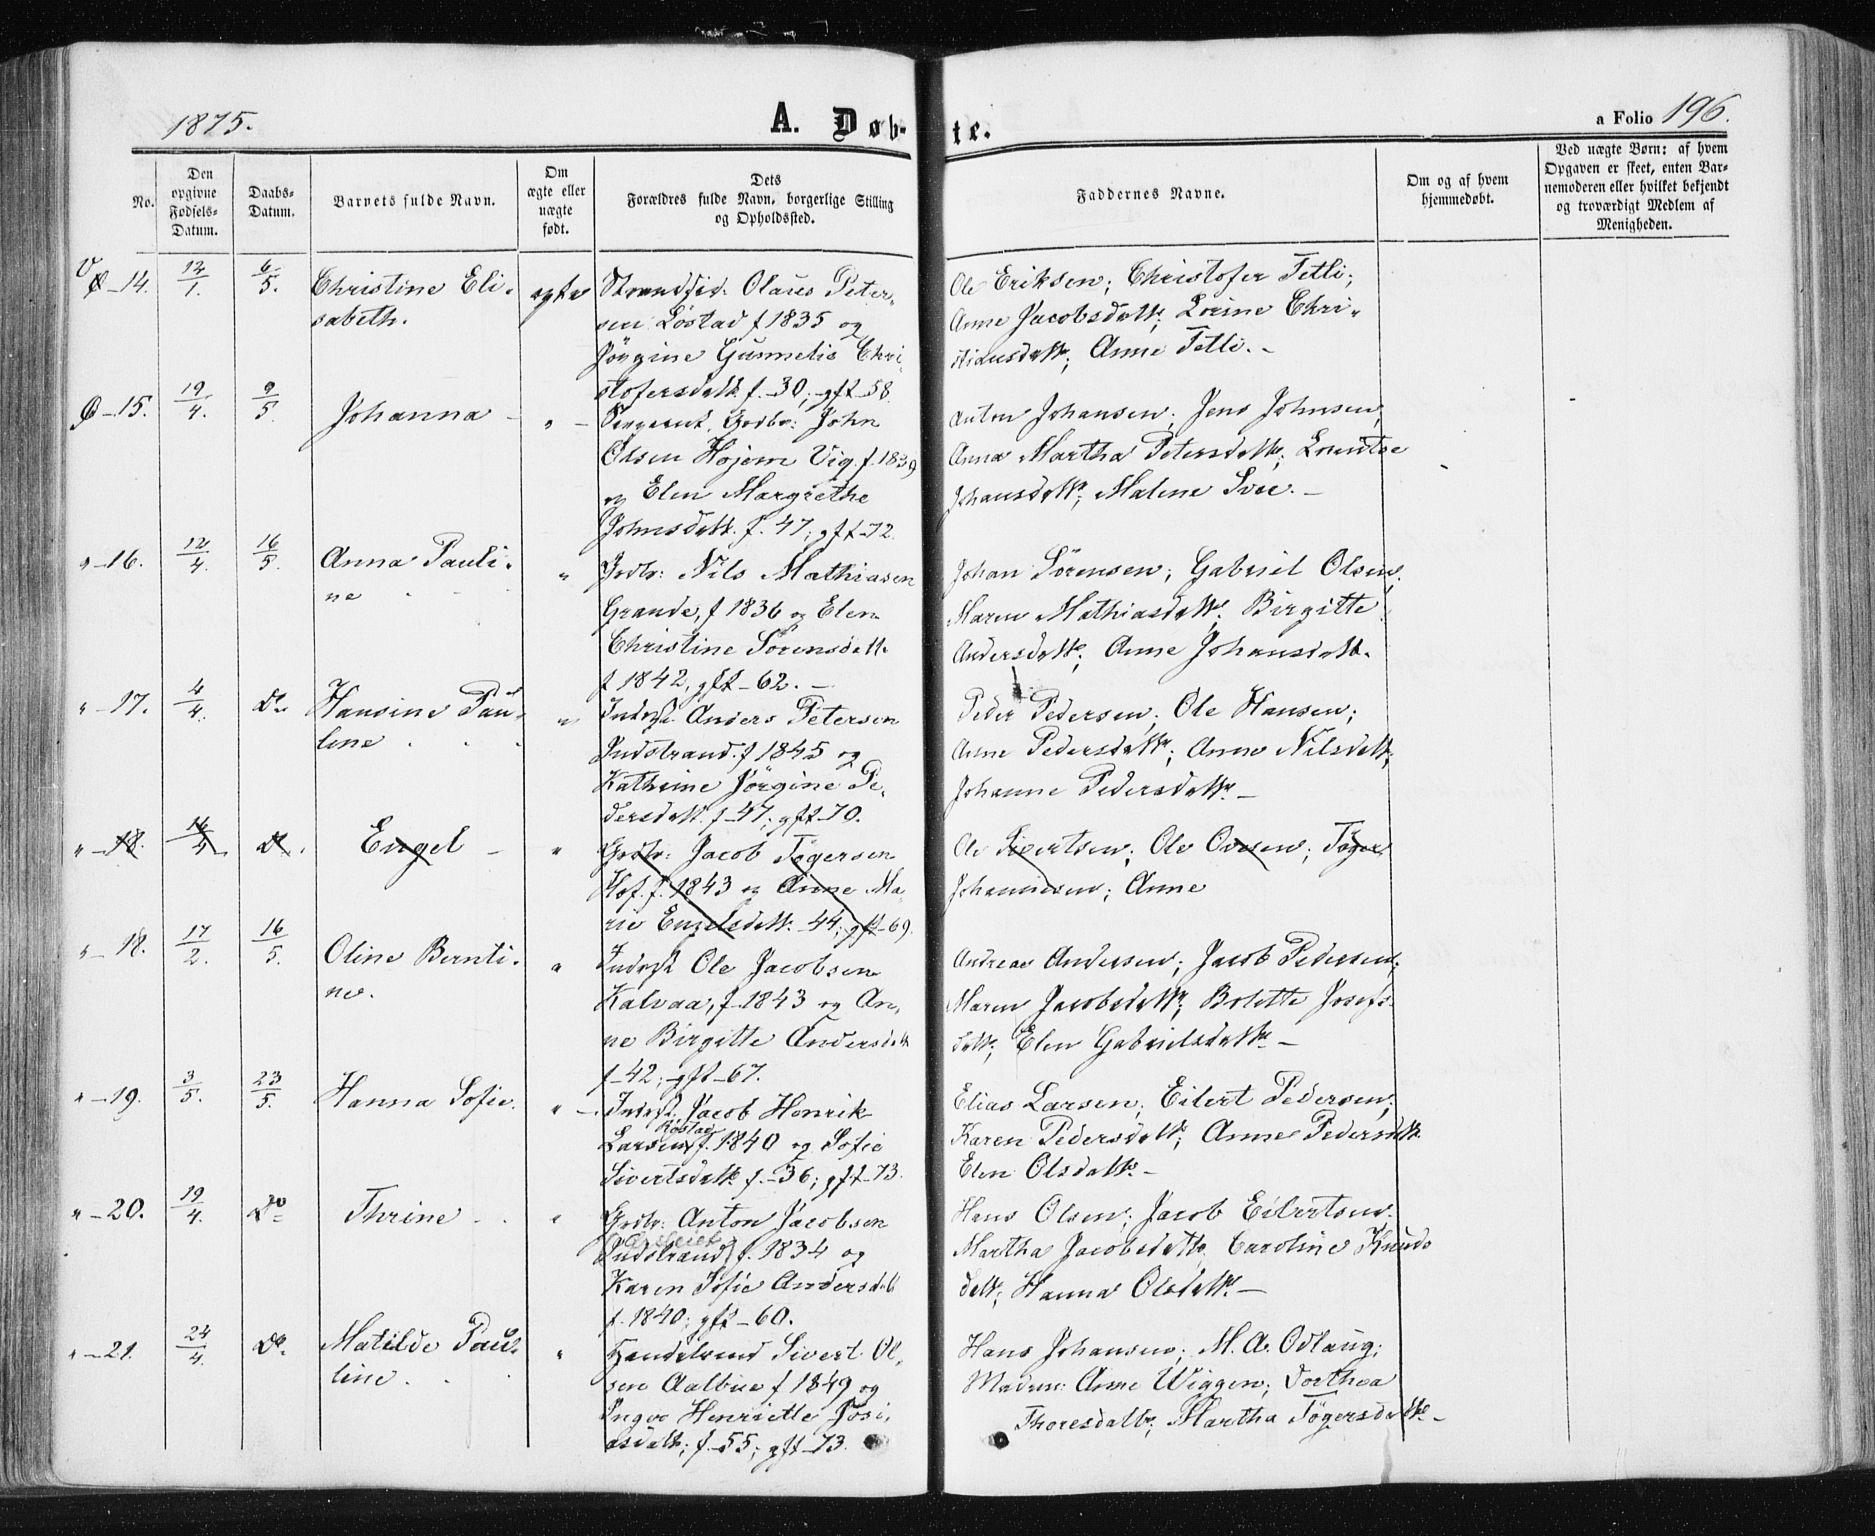 1875.
A. Døb-
te.
a Folio 196.
No.
Den
opgivne
Fødsels-
Datum.
Daabs-
Datum.
Barnets fulde Navn.
Om
ægte eller
uægte
født.
Dets
Forældres fulde Navn, borgerlige Stilling
og Opholdssted.
Faddernes Navne.
Om og af hvem
hjemmedøbt.
Ved uægte Børn: af hvem
Opgaven er skeet, enten Bar-
nemoderen eller hvilket bekjendt
og troværdigt Medlem af
Menigheden.
14.
12/1.
6/5.
Christine Eli-
sabeth.
ægte
Strandsid. Olaus Peter-
sen Løstad f 1835 og
Jørgine Gunnelis Chri-
stofersdatt. f. - 30; gft - 58.
Ole Eriksen; Christofer Tetli;
Anne Jacobsdatt; Lorine Chri-
stiansdatt; Anne Tetli. -
Ø - 15.
19/4.
9/5.
Johanna -
" -
Sergeant, Grdbr: John
Olsen Hojem Vig f. 1839
og Elen Margrethe
Johnsdatt. f. 47; gft - 72.
Anton Johansen; Jens Johnsen,
Anna Martha Petersdatt;
Johansdatt; Malene Svee. -
" - 16.
12/4.
16/5.
Anna Pauli-
ne
"
Grdbr: Nils Mathiasen
Grande, f 1836 og Elen
Christine Sørensdatt.
f 1842, gft - 62. -
Johan Sørensen; Gabriel Olsen,
Maren Mathiasdatt; Birgitte
Andersdatt; Anne Johansdatt.
" - 17.
4/4.
Do.
Hansine Pau-
line
"
Inderst. Anders Petersen
Indstrand. f 1845 og
Kathrine Jørgine Pe-
dersdatt. f - 47; gft - 70.
Peder Pedersen; Ole Hansen;
Anne Pedersdatt; Anne Nilsdatt;
Johanne Pedersdatt. -
" - 18.
16/4.
Do.
Engel -
"
Grdbr: Jacob Tøgersen
Hof. f. 1843 og Anne Ma-
rie Engelsdatt. - 44; gft - 69.
Ole Sivertsen; Ole Ovesen; Tøger
Johannesen; Anne
" - 18.
17/2.
16/5.
Oline Bernti-
ne.
"
Inderst Ole Jacobsen
Kalvaa, f - 1843 og An-
ne Birgitte Andersdatt
f - 42; gft - 67.
Andreas Andersen; Jacob Pedersen;
Maren Jacobsdatt; Bolette Josefs-
datt; Elen Gabrielsdatt. -
" - 19.
3/5.
23/5.
Hanna Sofie.
" -
Inderst. Jacob Henrik
Røstad
Larsen, f. 1840 og Sofie
Sivertsdatt f. - 36; gft - 73.
Elias Larsen; Eilert Pedersen;
Karen Pedersdatt; Anne Pedersdatt.
Elen Olsdatt. -
" - 20.
19/4.
Do
Thrine
"
Grdbr: Anton Jacobsen
Indstrand, f. 1834 og
Karen Sofie Andersdatt
f. 1840; gft - 60.
Hans Olsen; Jacob Eilertsen.
Martha Jacobsdatt; Caroline Knuds
datt; Hanna Olsdatt. -
" - 21.
24/4.
Do.
Matilde Pau-
line
"
Handelsmd Sivert Ol-
sen Aalbue f 1849 og
Inger Henriette Josi-
asdatt; f - 55; gft - 73.
Hans Johansen; M. A. Odlaug;
Madm: Anne Wiggen; Dorthea
Thoresdatt; Martha Tøgersdatt. -